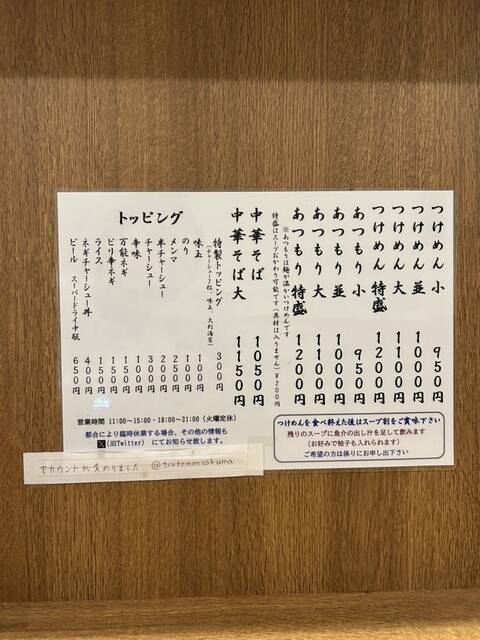 つけめん 小 950円
つけめん 並 1000円
つけめん 大 1100円
つけめん 特盛 1200円
あつもり 小 950円
あつもり 並 1000円
あつもり 大 1100円
あつもり 特盛 1200円
※あつもりは麺が温かいつけめんです
特盛はスープおかわり可能です(具材は入りません)¥200円
中華そば 1050円
中華そば 大 1150円
トッピング
特製トッピング 300円
(チャーシュー2枚、味玉、大判海苔)
味玉 100円
のり 100円
メンマ 250円
半チャーシュー 200円
チャーシュー 300円
辛味 100円
万能ネギ 150円
ピリ辛ネギ 150円
ライス 150円
ネギチャーシュー丼 400円
ビール スーパードライ中瓶 650円
営業時間 11:00~15:00・18:00~21:00(火曜定休)
都合により臨時休業する場合、その他の情報も
X(旧Twitter)にてお知らせ致します。
アカウントが変わりました @tsukemensakuma
つけめんを食べ終えた後はスープ割をご賞味下さい
残りのスープに魚介の出し汁を足して飲みます
(お好みで柚子も入れられます)
ご希望の方は係りにお申し出下さい